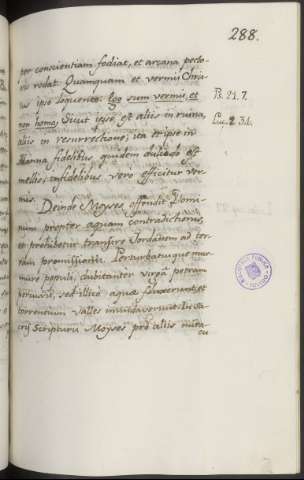 288.
per conscientiam fodiat, et arcana pecto-
ris rodat. Quamquam et vermis Chris-
tus ipso loquente: Ego sum vermis, et Ps. 21. 7.
non homo, sicut ipse est aliis in ruina, Luc. 2 34.
aliis in resurrectione; ita et ipse in
Manna fidelibus quidem dulcedo est
mellis, infidelibus vero efficitur ver-
mis.
Deinde Moyses offendit Domi-
num propter aquam contradictionis,
et prohibetur transire Jordanem ad ter-
ram promissionis. Perturbatusque mur-
mure populi, dubitanter virga petram
percussit, sed illico aquæ fluxerunt, et
torrentum valles inundaverunt. In sa-
cris Scripturis Moyses pro aliis
cu